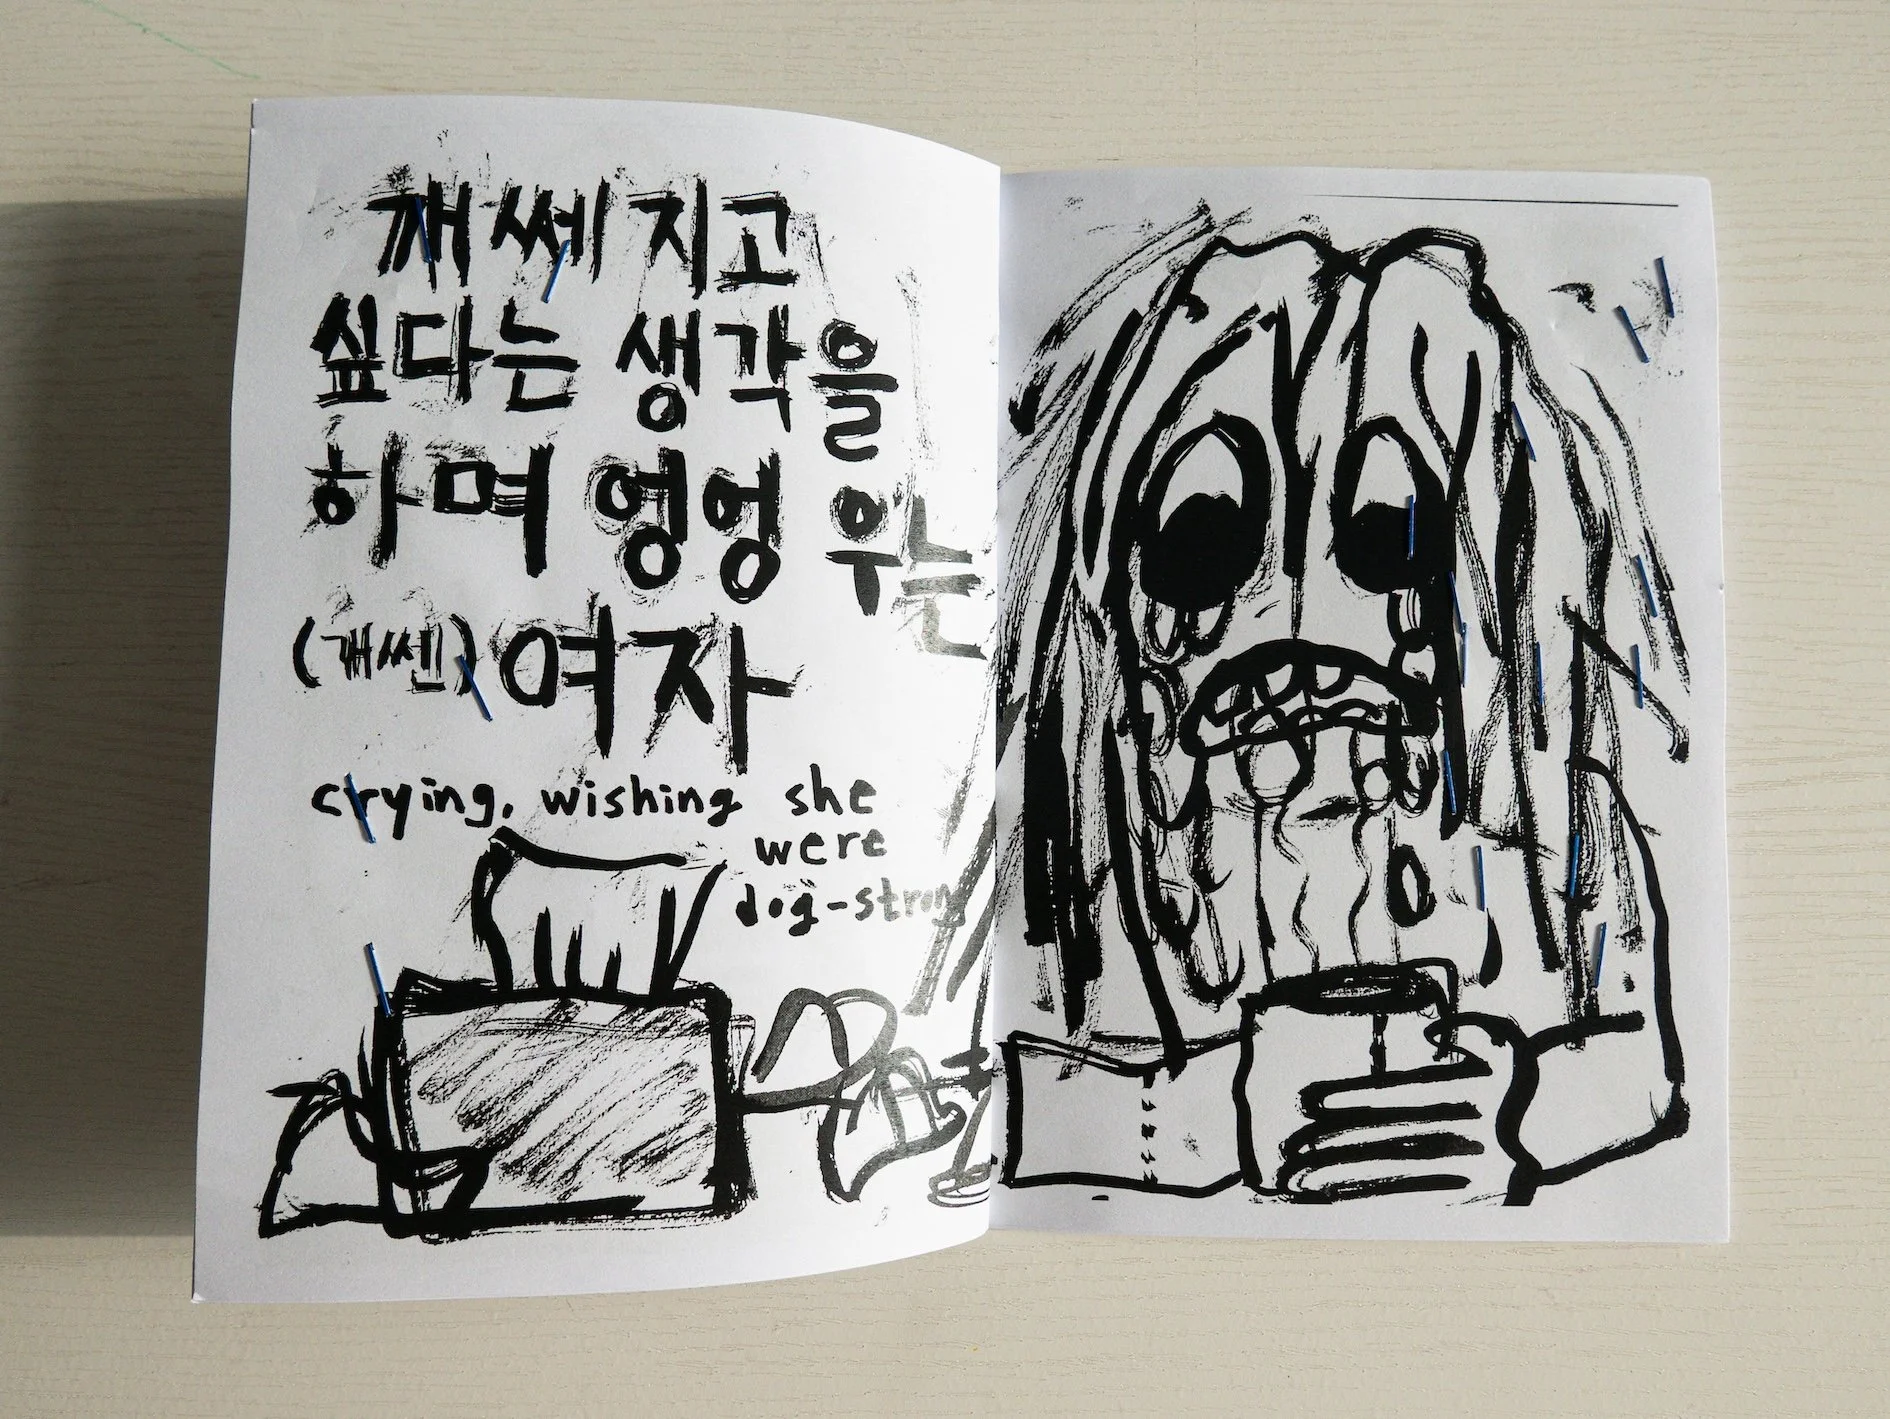 개쎄지고
싶다는 생각을
하며 엉엉 우는
(개쎈) 여자
crying, wishing she
were
dog-strong